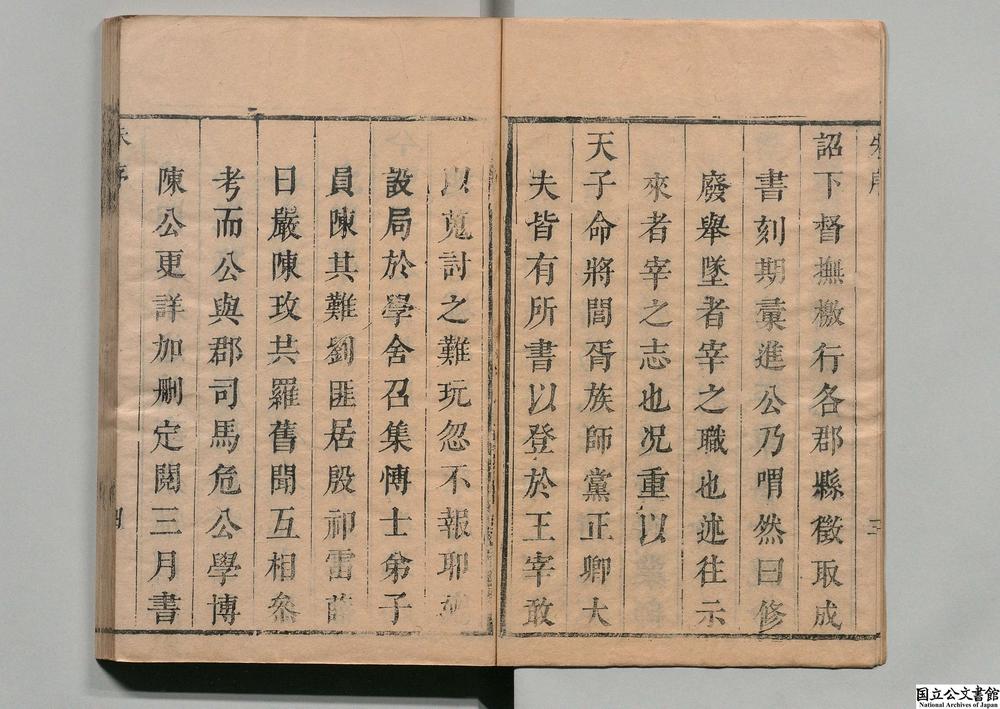 詔下督撫檄行各郡縣徵取成
書刻期彙進公乃喟然曰修
廢舉墜者宰之職也述往示
來者宰之志也况重以
天子命將閭胥族師黨正卿大
夫皆有所書以登於王宰敢
以蒐討之難玩忽不報耶
設局於學舍召集博士弟子
員陳其難劉匪居殷祁雷
日嚴陳玫共羅舊聞互相叅
考而公與郡司馬危公學博
陳公更詳加刪定閱三月書
国立公文書館
National Archives of Japan